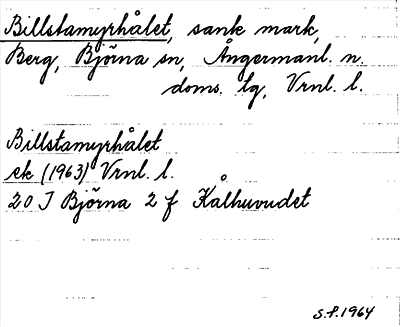 Billstamyrhålet, sank mark,
Berg, Björna sn, Ångermanl. n.
doms. lg, Vrnl. l.
Billstamyrhålet
ek (1963) Vrnl. l.
20 J Björna 2 f Kålhuvudet
S.P. 1964